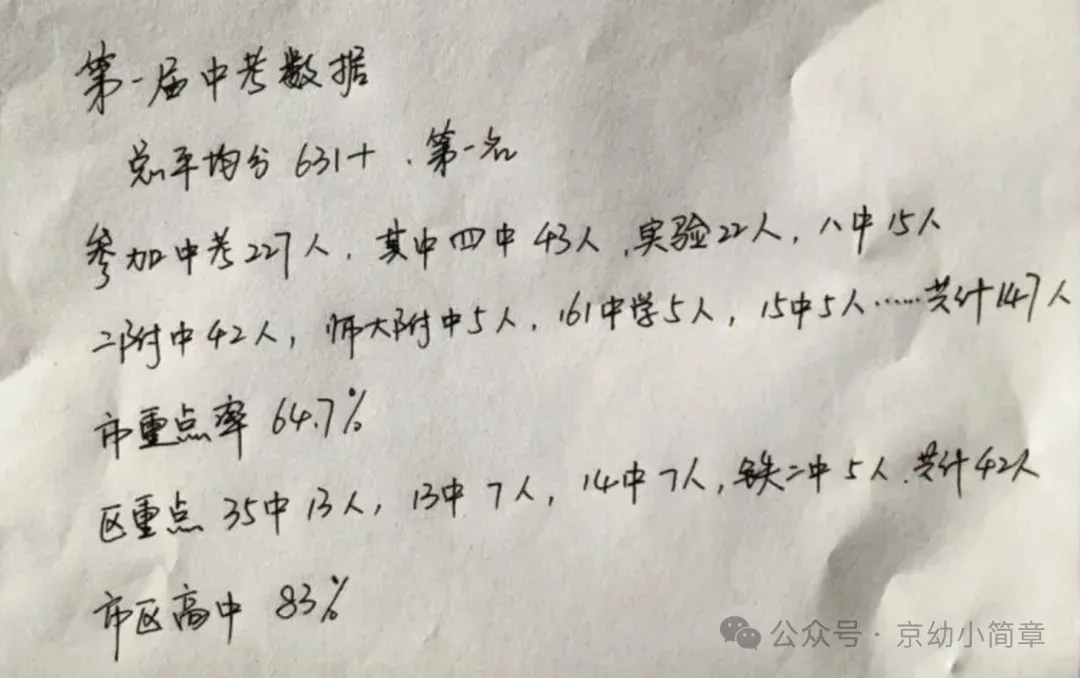 第一届中考数据
总平均分 631+、第一名
参加中考227人，其中四中43人，实验22人，八中15人
二附中42人，师大附中5人，161中学5人，15中5人……共计147人
市重点率 64.7%
区重点 35中13人，13中7人，14中7人，铁二中5人.共计42人
市区高中 83%
公众号·京幼小简章